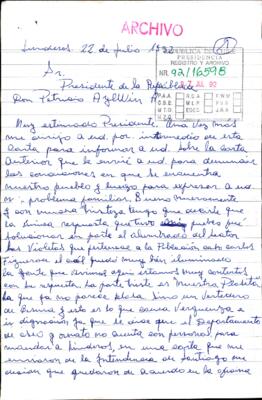 ARCHIVO
Linderos. 22 de Julio 1992
REPUBLICA DE CHILE
PRESIDENCIA
REGISTRO Y ARCHIVO
NR. 92/16598
Sr.
27 JUL 92
Presidente de la República
Don Patricio Aylwin A.
P.A.A. R.C.A. F.W.M.
C.B.E. M.L.P. P.V.S.
M.T.O. EDEC J.R.A.
M.Z.C.
Muy estimado Presidente: Una vez más
me dirijo a ud. por intermedio de esta
carta para informar a ud. sobre la carta
anterior que le envié a ud. para denunciar
las condiciones en que se encuentra
nuestro pueblo y luego para expresar a ud.
mi problema familiar. Bueno nuevamente
y con mucha tristeza tengo que decirle que
la única respuesta que tuvo pueblo fué
solamente en parte el alumbrado del sector
Las Violetas que pertenece a la Población
Figueroa el cuál quedó muy bien iluminado
la gente que vivimos aquí estamos muy contentos
con la respuesta. La parte triste es Nuestra Placita
la que ya no parece plaza. Sino un Vertedero
de Basura y esto es lo que causa Verguenza e
indignación ya que se dice que el Departamento
de aseo y ornato no cuenta con personal para
mandar a Linderos, en una copia que me
enviaron de la Intendencia de Santiago me
decían que quedaron de acuerdo en la oficina